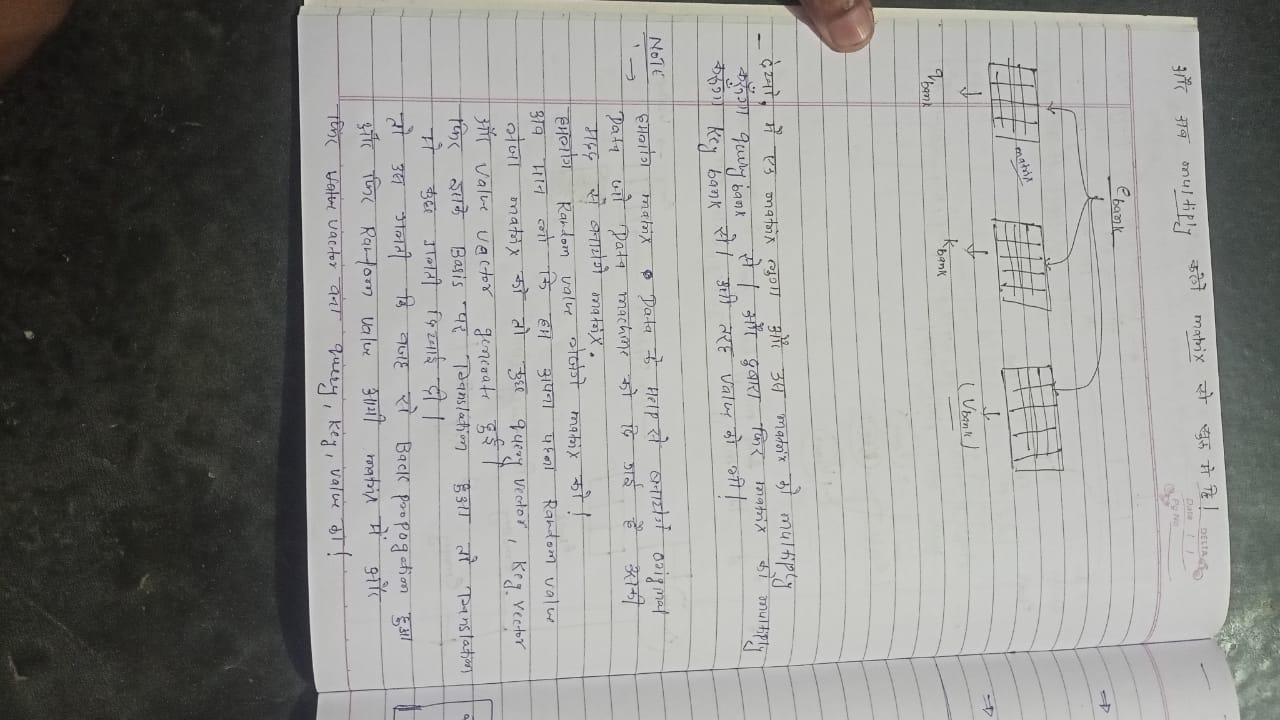 और अब multiply करेंगे matrix से शुरू में हि!
DELTA
Date
Pg No
e bank
matrix
q bank
K bank
(V bank)
- देखो, मैं एक matrix लुगा और उस matrix को multiply
करूँगा query bank से। और दुबारा फिर matrix को multiply
करूँगा Key bank से। उसी तरह Value को भी!
NOTE
! → हमलोग matrix Data के Help से बनायेगें original
Data जो Data machine को दि गई है उसकी
मदद से बनायेगें matrix.
हमलोग Random value भेजेंगे matrix को!
अब मान लो कि हम अपना पहला Random value
भेजा matrix को तो कुछ query vector, Key vector
और value vector generate हुई।
फिर इसके Basis पर Translation हुआ तो Translation
में कुछ गलती दिखाई दी।
तो उस गलती कि वजह से Back propogation हुआ
और फिर Random value आयी matrix में और
फिर value vactor बना query, Key, value का!